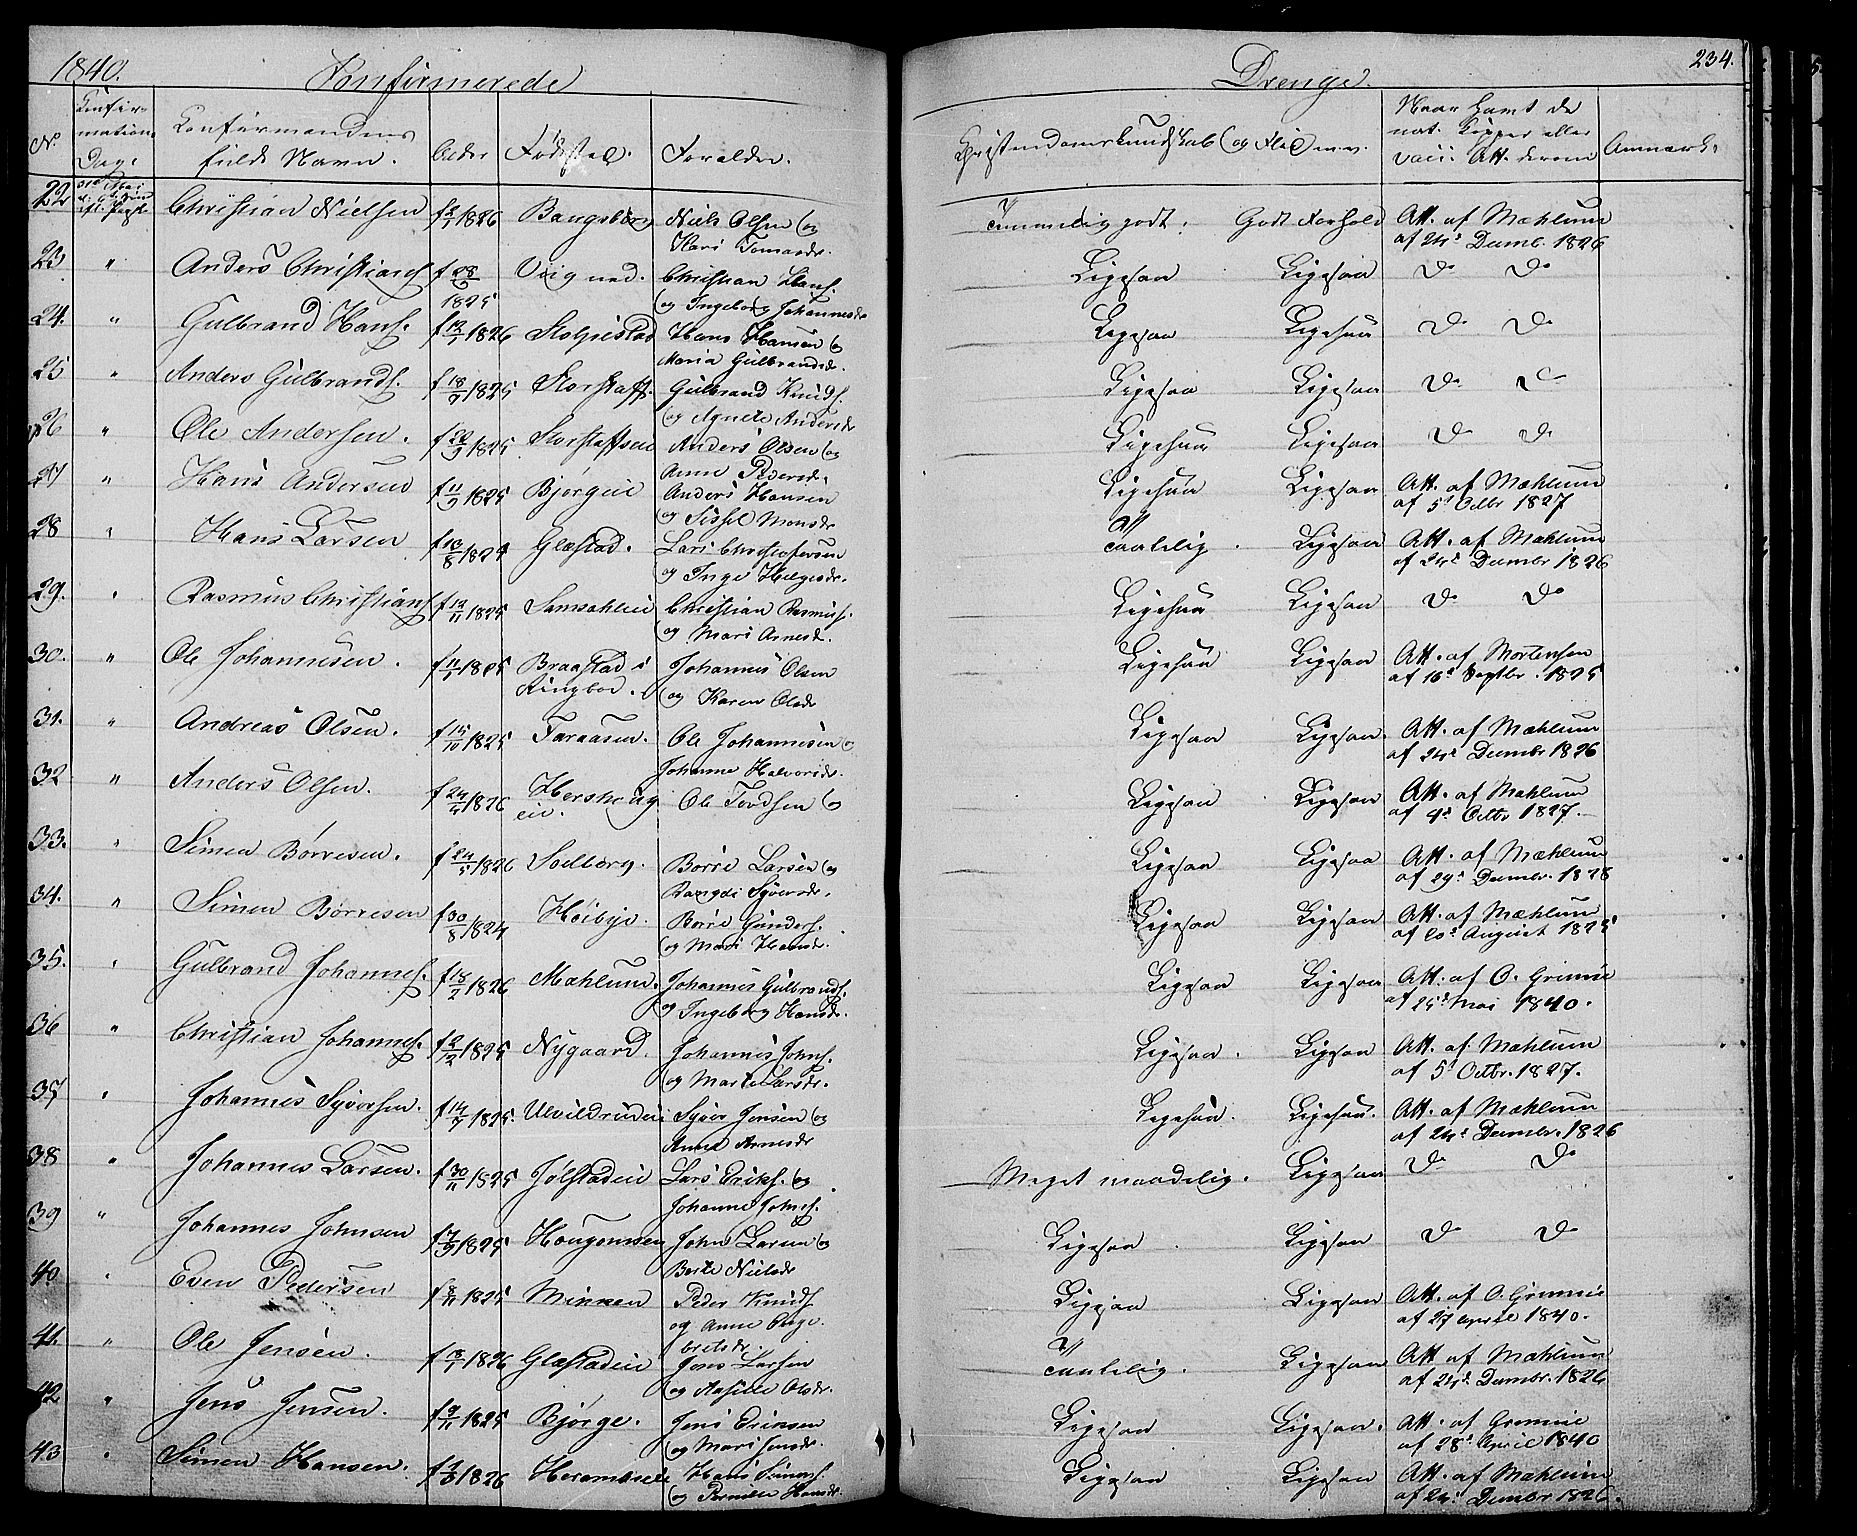 1840. Konfirmerede Drenge. 234.
No. Confirmations Dag. Confirmandens fulde Navn. Alder Fødested. Forældre. Christendomskundskab og Flid m.v. Naar samt de nat. Kopper eller vacc. Att. derom Anmærk.
22 31te Mai Christian Nielsen f 1826 Niels Olsen og Kari Tomasdr. Temmelig godt. Godt Forhold Att. af Mæhlum af 24d Decemb. 1826
23 " Anders Christians. f 1825 Christian Hans. og Ingeborg Johannesdr Ligesaa Ligesaa Do Do
24. " Gulbrand Hans. f 1826 Stolpestad Hans Hansen og Maria Gulbrandsdr. Ligesaa Ligesaa Do Do
25 " Anders Gulbrands. f 18/9 1825 Storstaff. Gulbrand Knuds. og Agnete Andersdr Ligesaa Ligesaa Do Do
26 " Ole Andersen. f 1825 Storstaffseie Anders Olsen og Anne Pedersdr. Ligesaa Ligesaa Do Do
27 " Hans Andersen f 11/9 1825 Bjørgeie Anders Hansen og Sissel Monsdr Ligesaa Ligesaa Att. af Mæhlum af 5d Octbr 1827
28 " Hans Larsen f 13/8 1824 Glæstad. Lars Christofersen og Inge Helgesdr. Ligesaa Att. af Mæhlum af 24d Decembr 1826
29. " Rasmus Christians f 1825 Christian Rasmus. og Mari Arnesdr. Ligesaa Ligesaa Do Do
30. " Ole Johannesen. f 1825 Bragstad i Ringboe. Johannes Olsen og Karen Olsdr Ligesaa Ligesaa Att. af Mortensen af 16d Septbr. 1825
31. " Andreas Olsen. f 15/10 1825 Faraasen. Ole Johannesen og Johanne Halvorsdr. Ligesaa Ligesaa. Att. af Mæhlum af 24d Decembr 1826
32 " Anders Olsen. f 24/4 1826 Hershoug eie. Ole Tordsen og Ligesaa Ligesaa Att. af Mæhlum af 4d Octbr 1827.
33. " Simen Børresen. f 24/5 1826 Solberg. Børre Larsen og Rangdi Syversdr. Ligesaa Ligesaa Att. af Mæhlum af 29d Decembr. 1826
34. " Simen Børresen f 30/8 1824 Høibye. Børre Gunders. og Mari Hansdr. Ligesaa Ligesaa Att. af Mæhlum August 1825
35. " Gulbrand Johannes. f 18/2 1826 Mæhlum. Johannes Gulbrands. og Ingeborg Hansdr. Ligesaa Ligesaa Att. af O. Grimsie af 25d Mai 1840.
36 " Christian Johannes. f 2/12 1825 Nygaard. Johannes Johns. og Marte Larsdr. Ligesaa. Ligesaa Att. af Mæhlum af 5d Octbr. 1827.
37 " Johannes Syversen. f 14/7 1825. Ulvildrudeie Syver Jensen og Anne Arnesdr Ligesaa. Ligesaa. Att. af Mæhlum af 24d Decembr. 1826
38 " Johannes Larsen. f 30/11 1825 Jølstadeie Lars Eriks. og Johanne Johns. Meget maadelig. Ligesaa Do Do
39 " Johannes Johnsen f 7/9 1825 John Larsen og Berte Nielsdr Ligesaa. Ligesaa Do Do
40 " Even Pedersen f 8/11 1825 Minnen Peder Knuds og Anne Enge britsdr. Ligesaa Ligesaa Att. af O. Grimsie af 27 April 1840.
41. " Ole Jensen. f 1826 Glæstadeie Jens Larsen og Olsdr. Maadelig. Ligesaa Att af Mæhlum af 24d Decembr. 1826
42 " Jens Jensen. f 9/11 1825 Bjørge. Jens Eriksen og Mari Jensdr. Ligesaa Ligesaa. Att. af Grimsie af 28d April 1840
43 " Simen Hansen. f 1826 Hans Simens. og Pernille Hansdr. Ligesaa Ligesaa Att. af Mæhlum af 24d Decembr 1826.